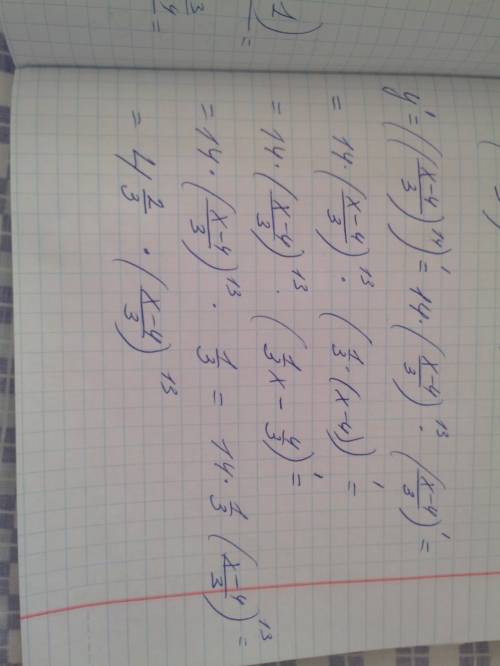 y' = ((x-4/3)^14)' = 14·(x-4/3)^13 · (x-4/3)' =
= 14·(x-4/3)^13 · (1/3·(x-4))' =
= 14·(x-4/3)^13 · (1/3x - 4/3)' =
= 14·(x-4/3)^13 · 1/3 = 14·1/3 (x-4/3)^13 =
= 4 2/3 · (x-4/3)^13